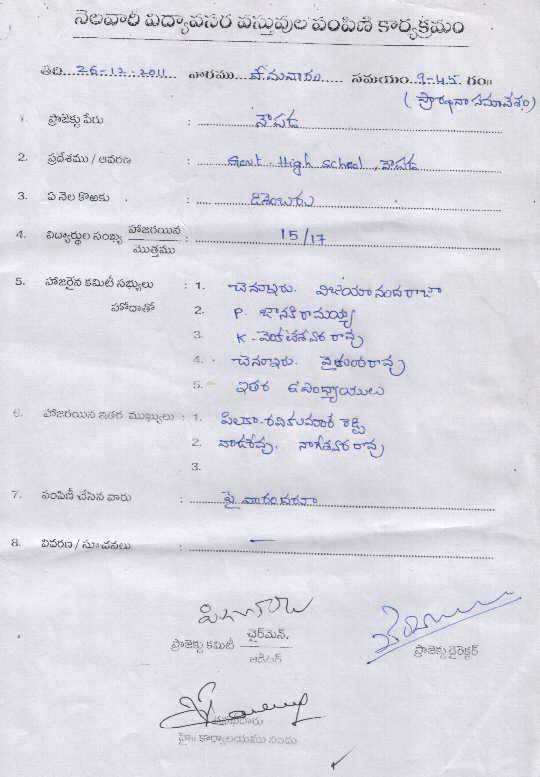 నెలవారీ విద్యావసర వస్తువుల పంపిణి కార్యక్రమం
తేది...26-12-2011... వారము...సోమవారం..... సమయం..9-45. గం॥
(ప్రార్థనా సమావేశం)
1. ప్రాజెక్టు పేరు : నౌపడ
2. ప్రదేశము / ఆవరణ : Govt. High School, నౌపడ
3. ఏ నెల కొఱకు : డిశెంబరు
4. విద్యార్థుల సంఖ్య హాజరయిన / మొత్తము : 15/17
5. హాజరైన కమిటీ సభ్యులు : 1. విజయానందరాజా
హోదాతో 2. P. జానకి రామయ్య
3. K. వెంకటేశ్వర రావు
4. వైకుంఠరావు
5. ఇతర ఉపాధ్యాయులు
6. హాజరయిన ఇతర ముఖ్యులు : 1. రవికుమార
2. నాగేశ్వర రావు
3.
7. పంపిణీ చేసిన వారు : పై వారందరూ
8. వివరణ / సూచనలు : —
ప్రాజెక్టు కమిటీ ఛైర్‌మెన్. / ఆడిటర్
ప్రాజెక్టు డైరెక్టర్
హై॥ కార్యాలయము నందు